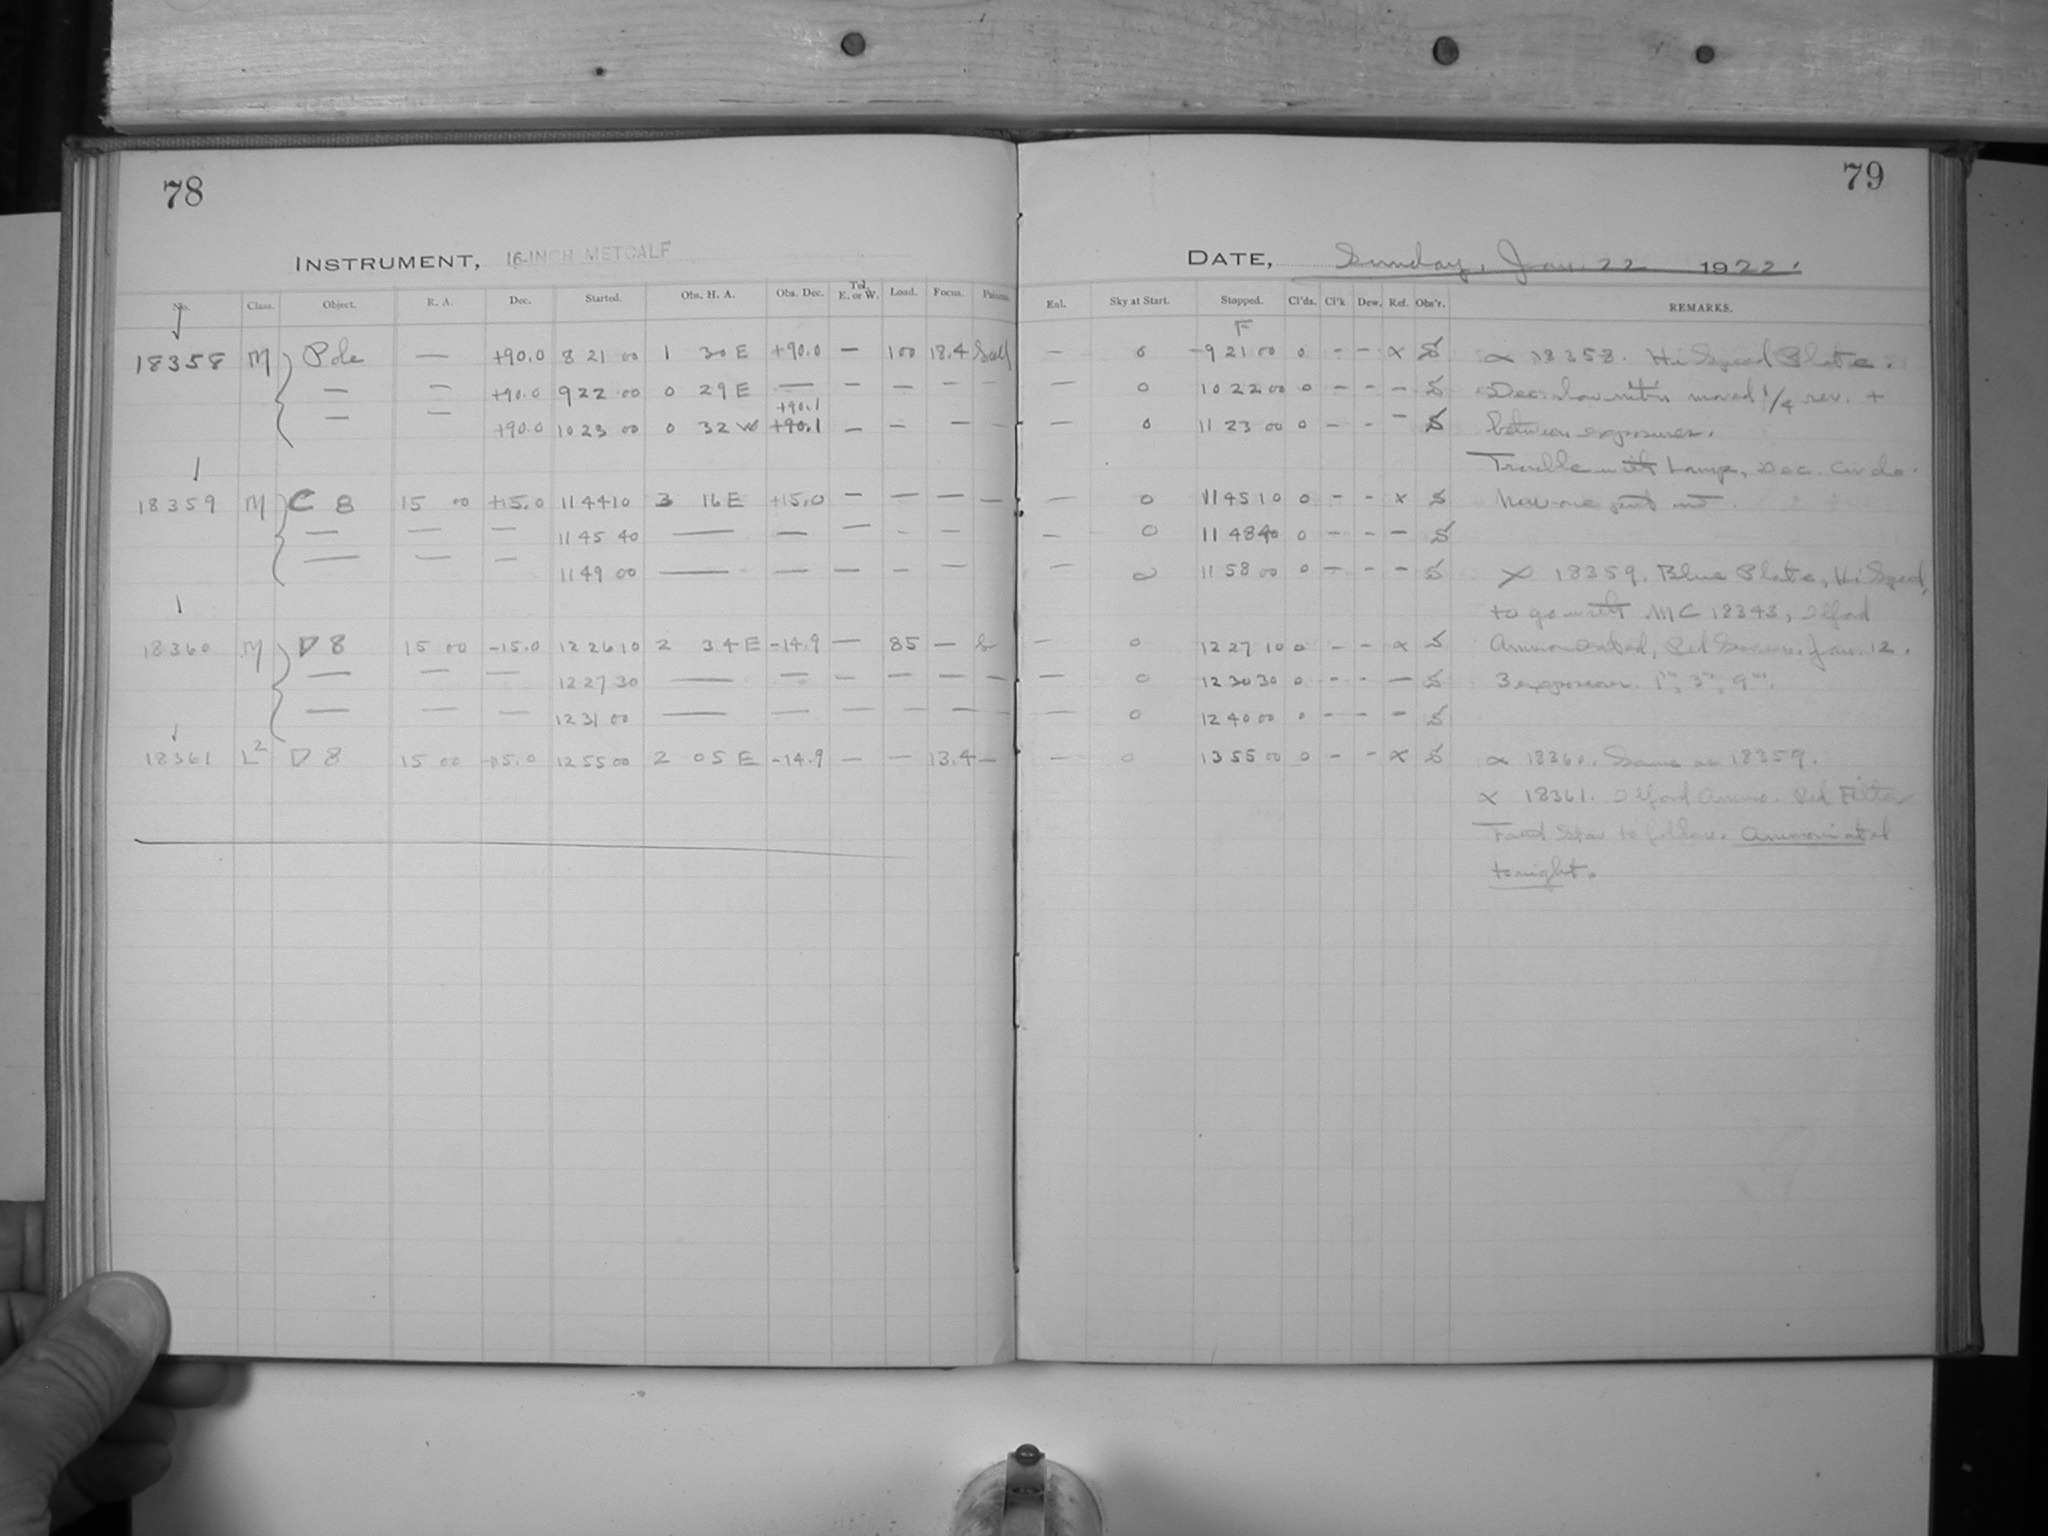 78
INSTRUMENT, 16-INCH METCALF
No. Class. Object. R. A. Dec. Started. Obs. H. A. Obs. Dec. Tel. E. or W. Load. Focus.
18358 M Pole — +90.0 8 21 00 1 30 E +90.0 — 100 13.4
— — +90.0 9 22 00 0 29 E — — — — —
+90.1
— — +90.0 10 23 00 0 32 W +90.1 — — — —
18359 M C 8 15 00 +15.0 11 44 10 3 16 E +15.0 — — — —
— — — 11 45 40 — — — - —
— — — 11 49 00 — — — — —
18360 M D 8 15 00 -15.0 12 26 10 2 34 E -14.9 — 85 — S
— — — 12 27 30 — — — — — —
— — — 12 31 00 — — — — — —
18361 L2 D 8 15 00 -15.0 12 55 00 2 05 E -14.9 — — 13.4 —
79
DATE, Sunday, Jan. 22 1922.
Eal. Sky at Start. Stopped. Cl'ds. Cl'k Dew. Ref. Obs'r. REMARKS.
F
— 0 9 21 00 0 - - x S 18358. Hi Speed Plate.
— 0 10 22 00 0 - - - S Dec. slow motion moved 1/4 rev. +
— 0 11 23 00 0 - - - S between exposures.
Trouble with Lamp, Dec. Circle.
— 0 11 45 10 0 - - x S New one put in.
— 0 11 48 40 0 - - - S
— 0 11 58 00 0 - - - S 18359. Blue Plate, Hi Speed,
to go with MC 18343, Ilford
— 0 12 27 10 0 - - x S Ammoniated, Red Screen. Jan. 12.
— 0 12 30 30 0 - - — S 3 exposures. 1m, 3m, 9m.
— 0 12 40 00 0 - - - S
— 0 13 55 00 0 - - x S 18360. Same as 18359.
18361. Ilford Ammo. Red Filter
Faint Star to follow. Ammoniated
tonight.